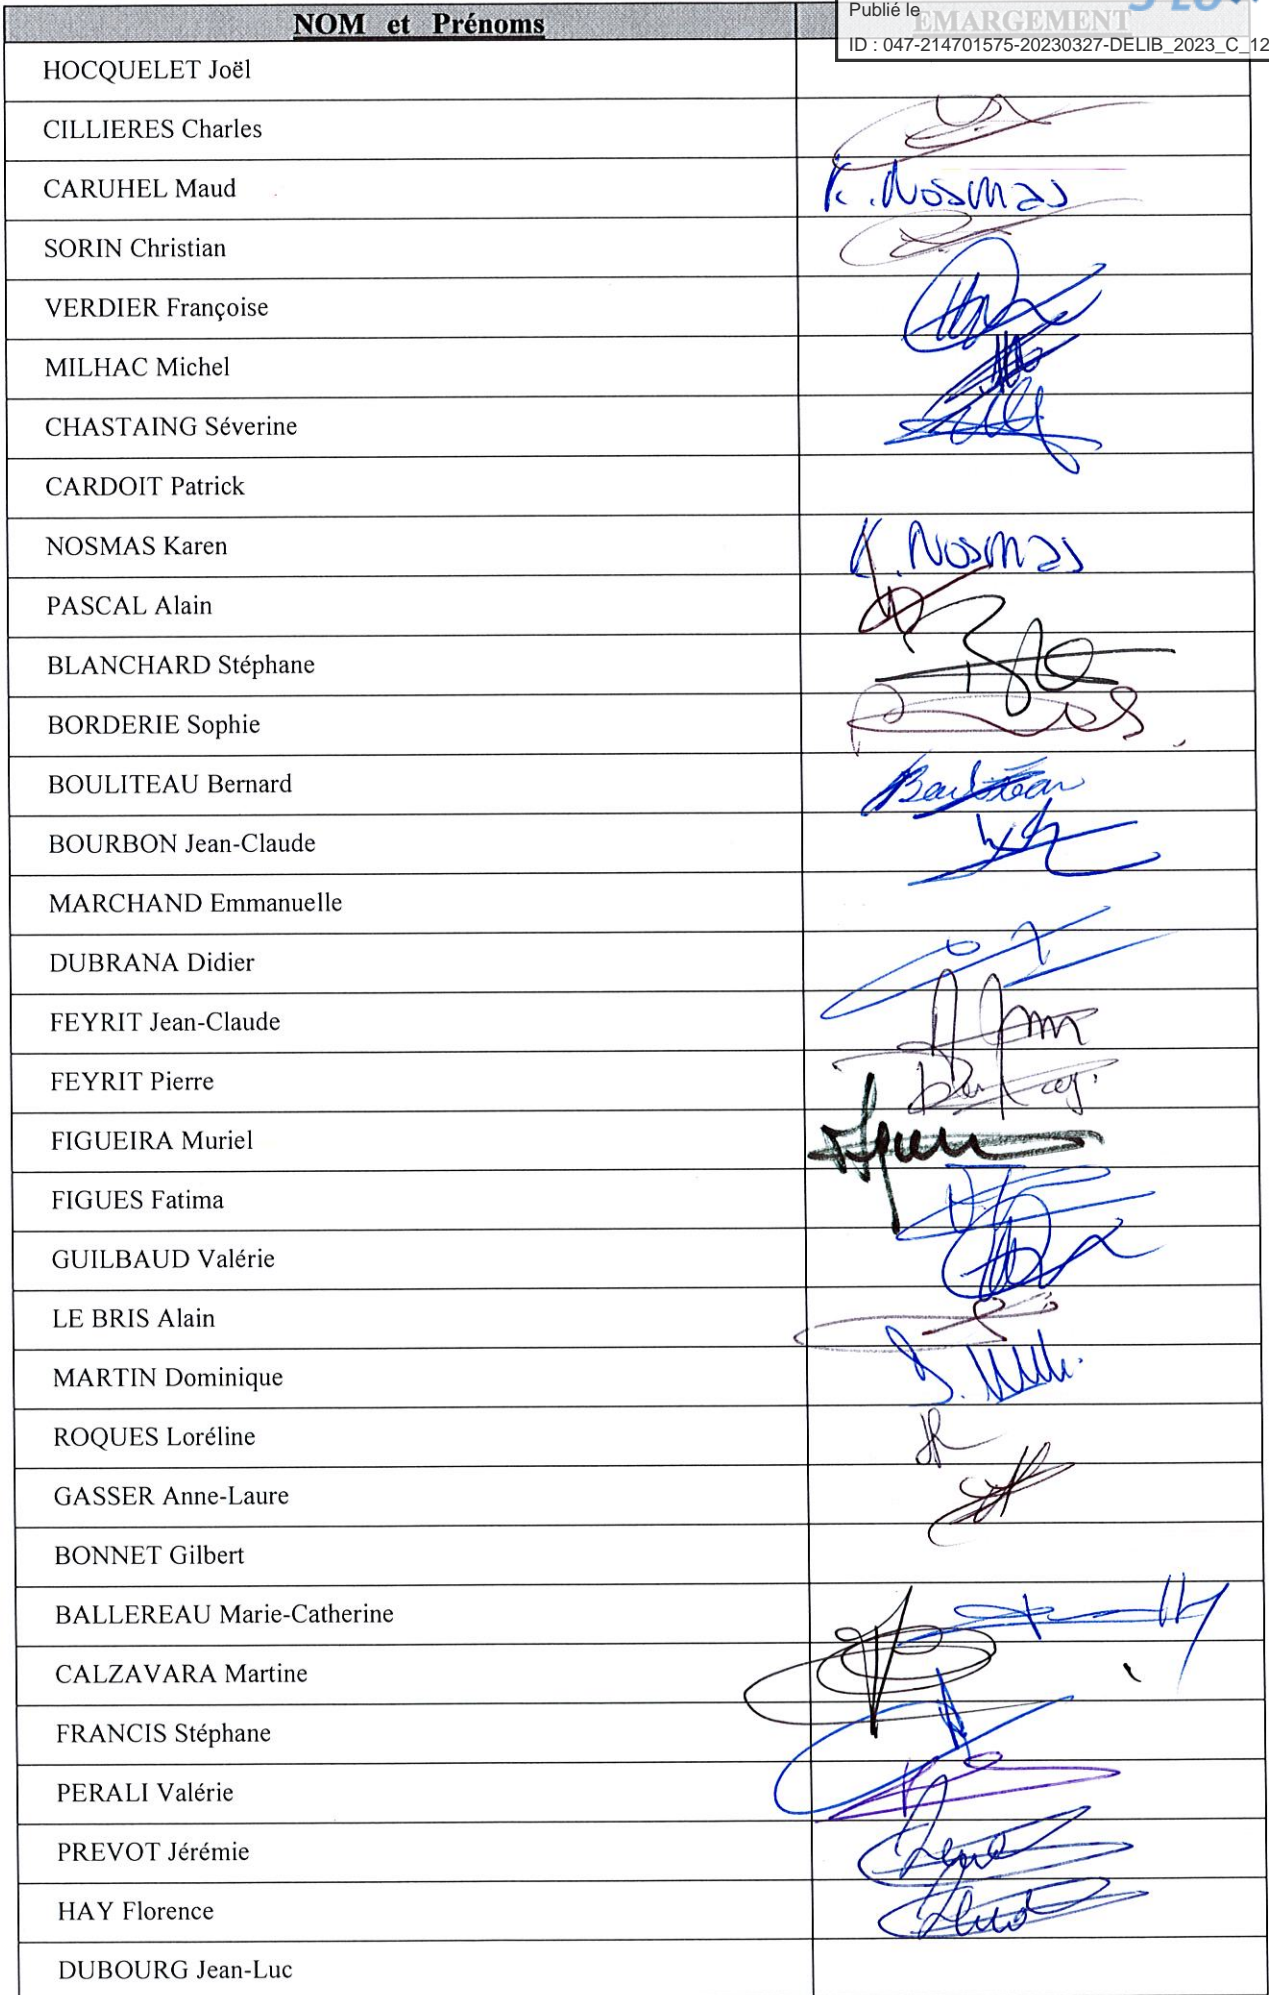 NOM et Prénoms
Publié le
EMARGEMENT
ID : 047-214701575-20230327-DELIB_2023_C_12
HOCQUELET Joël
CILLIERES Charles
CARUHEL Maud
K. NOSMAS
SORIN Christian
VERDIER Françoise
MILHAC Michel
CHASTAING Séverine
CARDOIT Patrick
NOSMAS Karen
K. NOSMAS
PASCAL Alain
BLANCHARD Stéphane
BORDERIE Sophie
BOULITEAU Bernard
BOURBON Jean-Claude
MARCHAND Emmanuelle
DUBRANA Didier
FEYRIT Jean-Claude
FEYRIT Pierre
FIGUEIRA Muriel
FIGUES Fatima
GUILBAUD Valérie
LE BRIS Alain
MARTIN Dominique
ROQUES Loréline
GASSER Anne-Laure
BONNET Gilbert
BALLEREAU Marie-Catherine
CALZAVARA Martine
FRANCIS Stéphane
PERALI Valérie
PREVOT Jérémie
HAY Florence
DUBOURG Jean-Luc